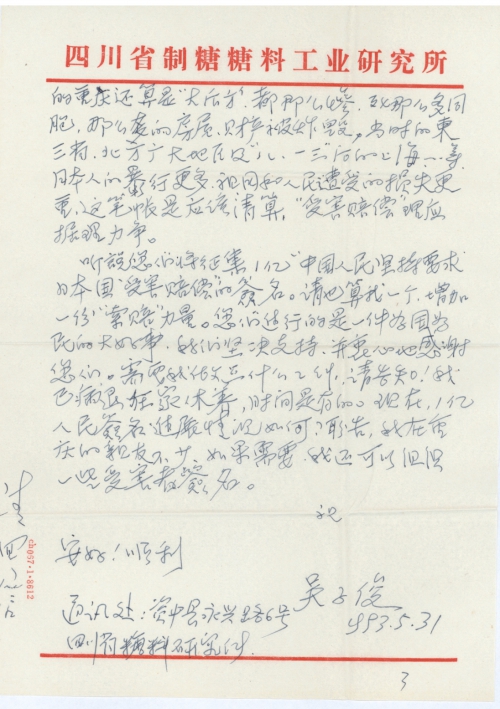 四川省制糖糖料工业研究所
的重庆还算是"大后方",都那么惨,死那么多同
胞,那么多的房屋、财产被炸毁,当时的東
三省、北方广大地区及"八·一三"后的上海……等
日本人的暴行更多,祖国和人民遭受的损失更
重,这笔帐是应该清算,"受害赔偿"理应
据理力争。
听说您们将征集1亿"中国人民坚持要求
日本国"受害赔偿"的簽名。请也算我一个,增加
一份"索赔"力量。您们进行的是一件为国为
民的大好事,我们坚决支持,并衷心地感谢
您们。需要我作点什么工作,请告知!我
已病退在家休养,时间是有的。现在,1亿
人民簽名进展情况如何?盼告,我在重
庆的親友不少,如果需要,我还可以组织
一些受害者簽名。
祝
安好!顺利
吴子俊
1993.5.31
通讯处:资中县永兴路6号
四川省糖料研究所
请回信
ch057·1·8612
3